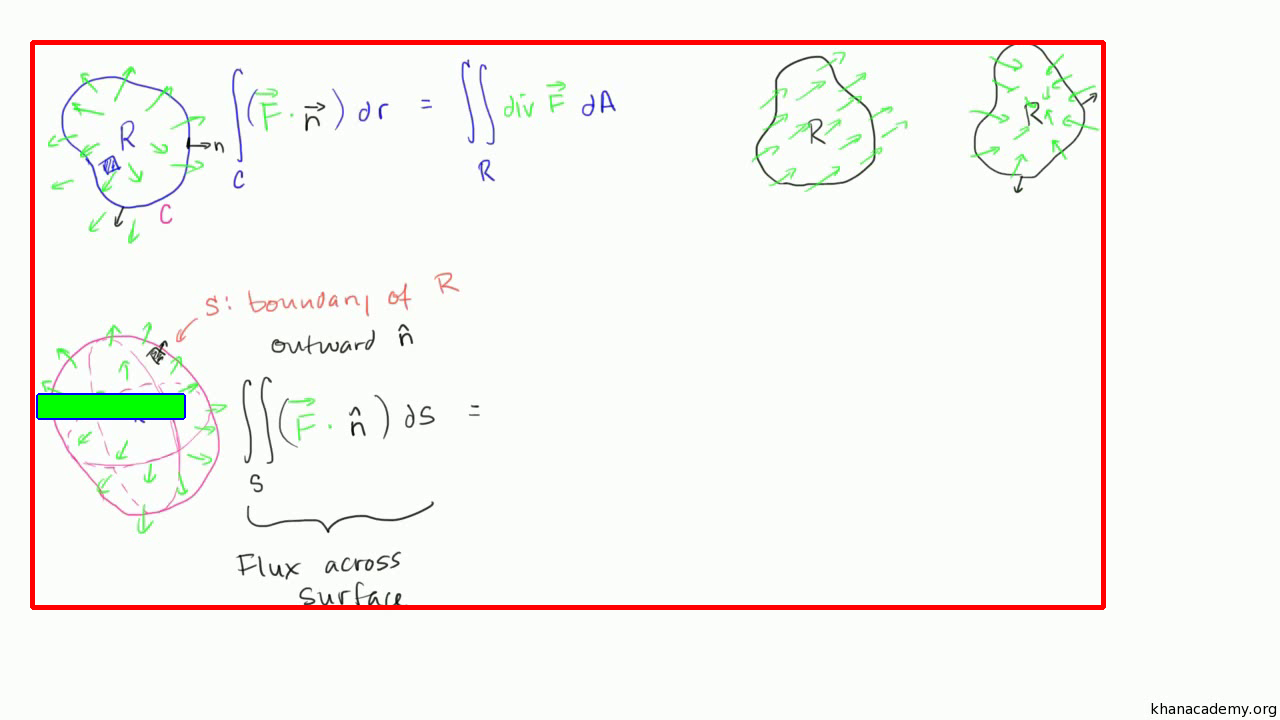 R
n
C
∫_C (F⃗ · n⃗) dr = ∬_R div F⃗ dA
R
R
S: boundary of R
outward n̂
∬_S (F⃗ · n̂) dS =
Flux across
surface
khanacademy.org